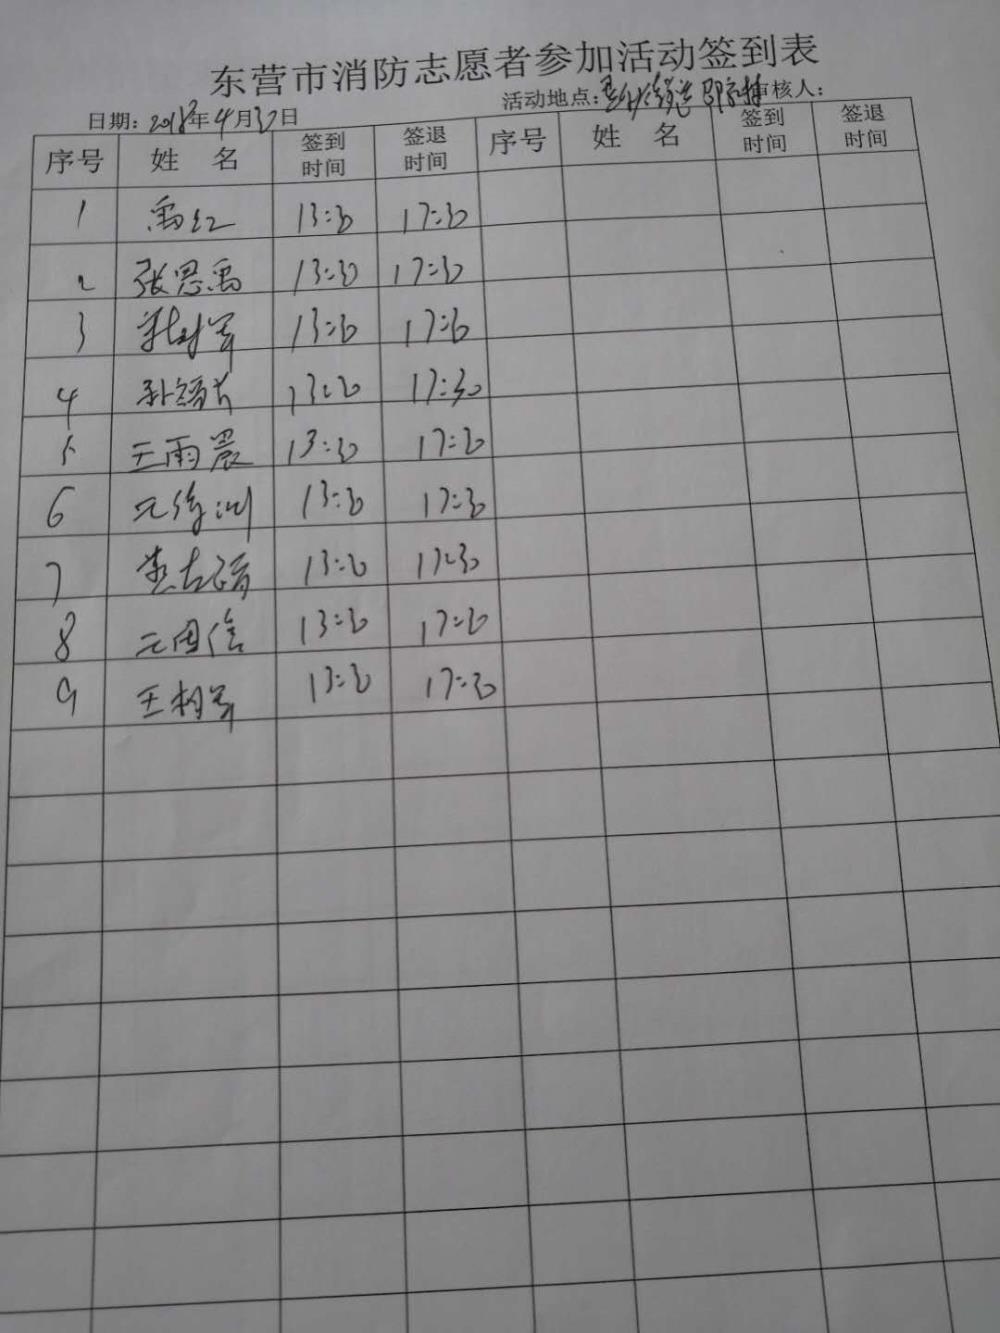 东营市消防志愿者参加活动签到表
日期：2018年4月30日 活动地点： 审核人：
序号 姓 名 签到时间 签退时间 序号 姓 名 签到时间 签退时间
1 禹红 13:30 17:30
2 张恩禹 13:30 17:30
3 13:30 17:30
4 13:30 17:30
5 王雨晨 13:30 17:30
6 13:30 17:30
7 13:30 17:30
8 13:30 17:30
9 王相军 13:30 17:30